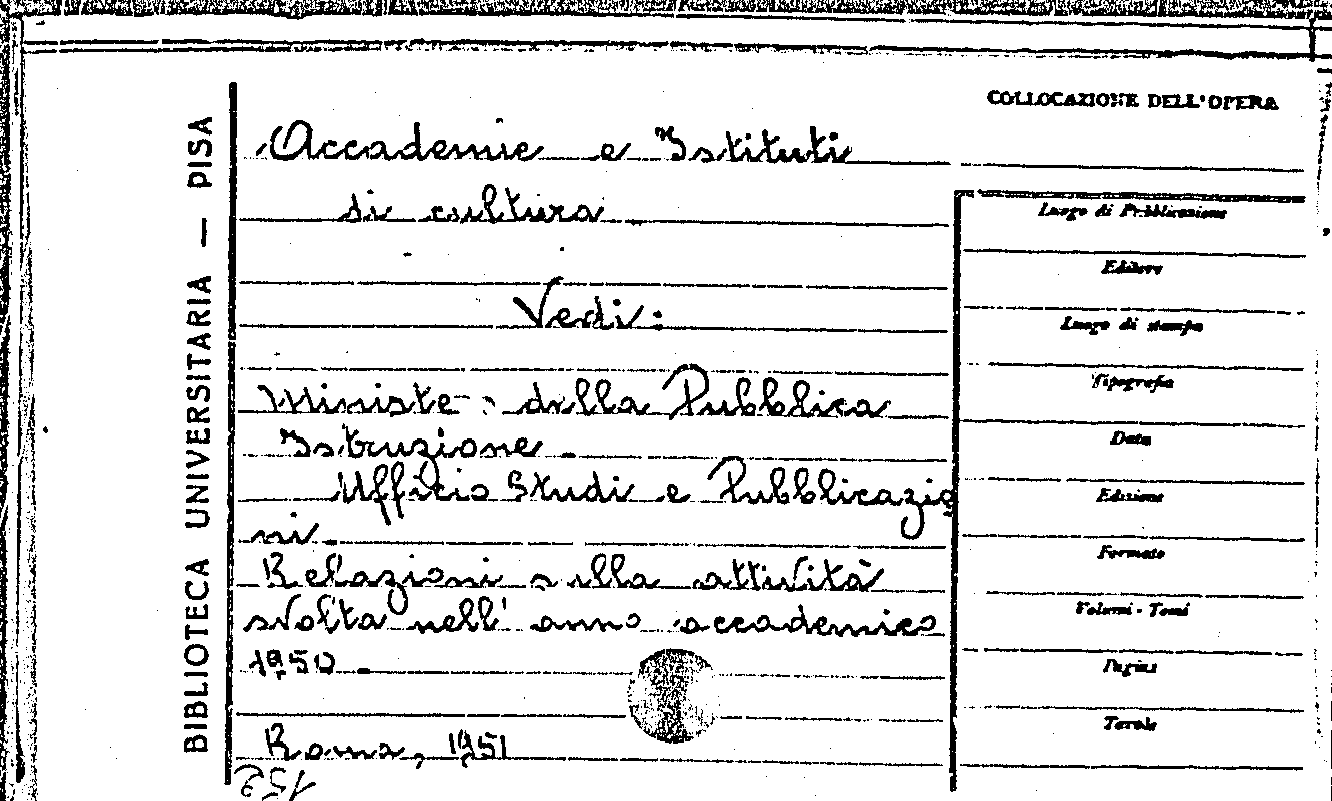 COLLOCAZIONE DELL'OPERA
BIBLIOTECA UNIVERSITARIA — PISA
Accademie e Istituti
di cultura
Vedi:
Ministe della Pubblica
Istruzione -
Ufficio Studi e Pubblicazio
ni -
Relazioni sulla attività
svolta nell' anno accademico
1950 -
Roma, 1951
Luogo di Pubblicazione
Editore
Luogo di stampa
Tipografia
Data
Edizione
Formato
Volumi - Tomi
Pagine
Tavole